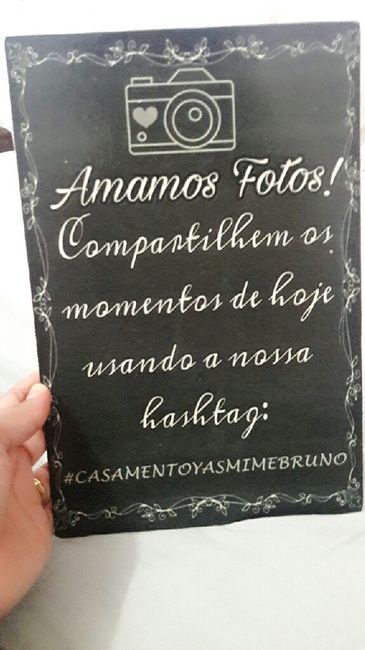 Amamos Fotos!
Compartilhem os
momentos de hoje
usando a nossa
hashtag:
#CASAMENTOYASMIMEBRUNO